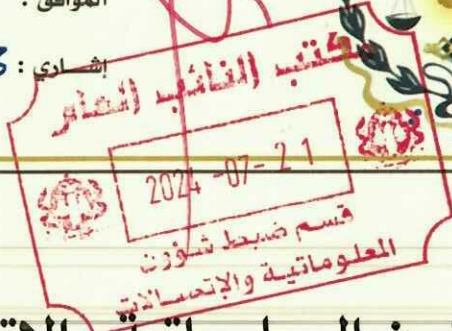 الموافق :
إشاري :
مكتب النائب العام
2024 -07- 21
قسم ضبط شؤون
المعلوماتية والإتصالات